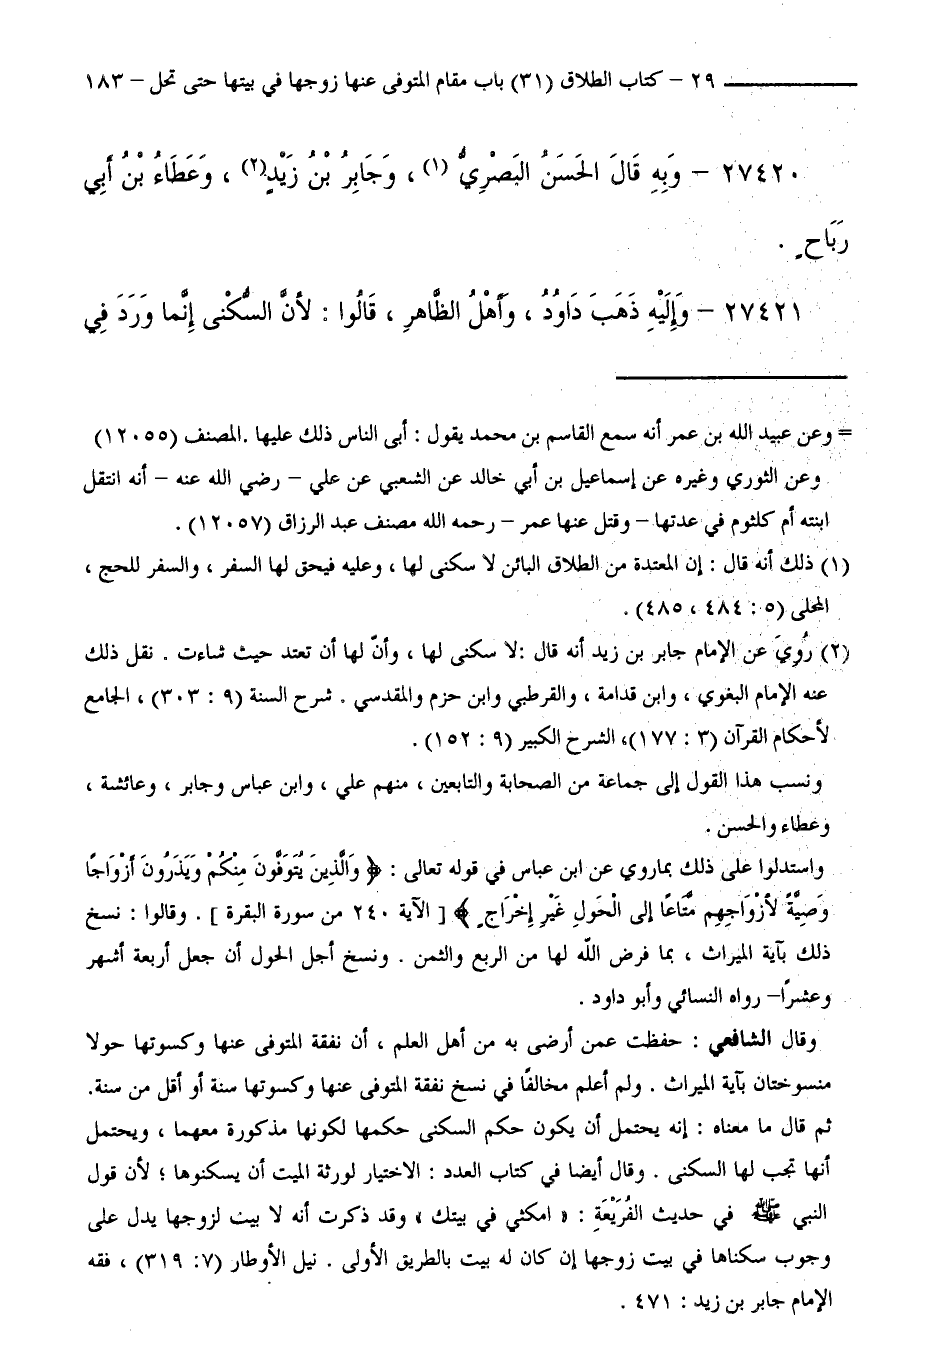 ٢٩ – كتاب الطلاق (٣١) باب مقام المتوفى عنها زوجها في بيتها حتى تحل – ١٨٣
٢٧٤٢٠ – وَبِهِ قَالَ الحَسَنُ البَصْرِيُّ (١) ، وَجَابِرُ بْنُ زَيْدٍ(٢) ، وَعَطَاءُ بْنُ أَبِي
رَبَاحٍ .
٢٧٤٢١ – وَإِلَيْهِ ذَهَبَ دَاوُدُ ، وَأَهْلُ الظَّاهِرِ ، قَالُوا : لأنَّ السُّكْنى إِنَّما وَرَدَ فِي
= وعن عبيد الله بن عمر أنه سمع القاسم بن محمد يقول : أبى الناس ذلك عليها .المصنف (١٢٠٥٥)
وعن الثوري وغيره عن إسماعيل بن أبي خالد عن الشعبي عن علي – رضي الله عنه – أنه انتقل
ابنته أم كلثوم في عدتها – وقتل عنها عمر – رحمه الله مصنف عبد الرزاق (١٢٠٥٧) .
(١) ذلك أنه قال : إن المعتدة من الطلاق البائن لا سكنى لها ، وعليه فيحق لها السفر ، والسفر للحج ،
المحلى (٥ : ٤٨٤ ، ٤٨٥) .
(٢) رُوِيَ عن الإمام جابر بن زيد أنه قال :لا سكنى لها ، وأنّ لها أن تعتد حيث شاءت . نقل ذلك
عنه الإمام البغوي ، وابن قدامة ، والقرطبي وابن حزم والمقدسي . شرح السنة (٩ : ٣٠٣) ، الجامع
لأحكام القرآن (٣ : ١٧٧)، الشرح الكبير (٩ : ١٥٢) .
ونسب هذا القول إلى جماعة من الصحابة والتابعين ، منهم علي ، وابن عباس وجابر ، وعائشة ،
وعطاء والحسن .
واستدلوا على ذلك بماروي عن ابن عباس في قوله تعالى : ﴿ وَالَّذِينَ يُتَوَفَّونَ مِنْكُمْ وَيَذَرُونَ أزْوَاجًا
وَصِيَّةً لأزْوَاجِهِم مَّتَاعًا إلى الْحَولِ غَيْرِ إِخْرَاجٍ ﴾ [ الآية ٢٤٠ من سورة البقرة ] . وقالوا : نسخ
ذلك بآية الميراث ، بما فرض اللَّه لها من الربع والثمن . ونسخ أجل الحول أن جعل أربعة أشهر
وعشرًا– رواه النسائي وأبو داود .
وقال الشافعي : حفظت عمن أرضى به من أهل العلم ، أن نفقة المتوفى عنها وكسوتها حولا
منسوختان بآية الميراث . ولم أعلم مخالفًا في نسخ نفقة المتوفى عنها وكسوتها سنة أو أقل من سنة.
ثم قال ما معناه : إنه يحتمل أن يكون حكم السكنى حكمها لكونها مذكورة معهما ، ويحتمل
أنها تجب لها السكنى . وقال أيضا في كتاب العدد : الاختيار لورثة الميت أن يسكنوها ؛ لأن قول
النبي ﷺ في حديث الفُرَيْعَةِ : « امكثي في بيتك » وقد ذكرت أنه لا بيت لزوجها يدل على
وجوب سكناها في بيت زوجها إن كان له بيت بالطريق الأولى . نيل الأوطار (٧: ٣١٩) ، فقه
الإمام جابر بن زيد : ٤٧١ .